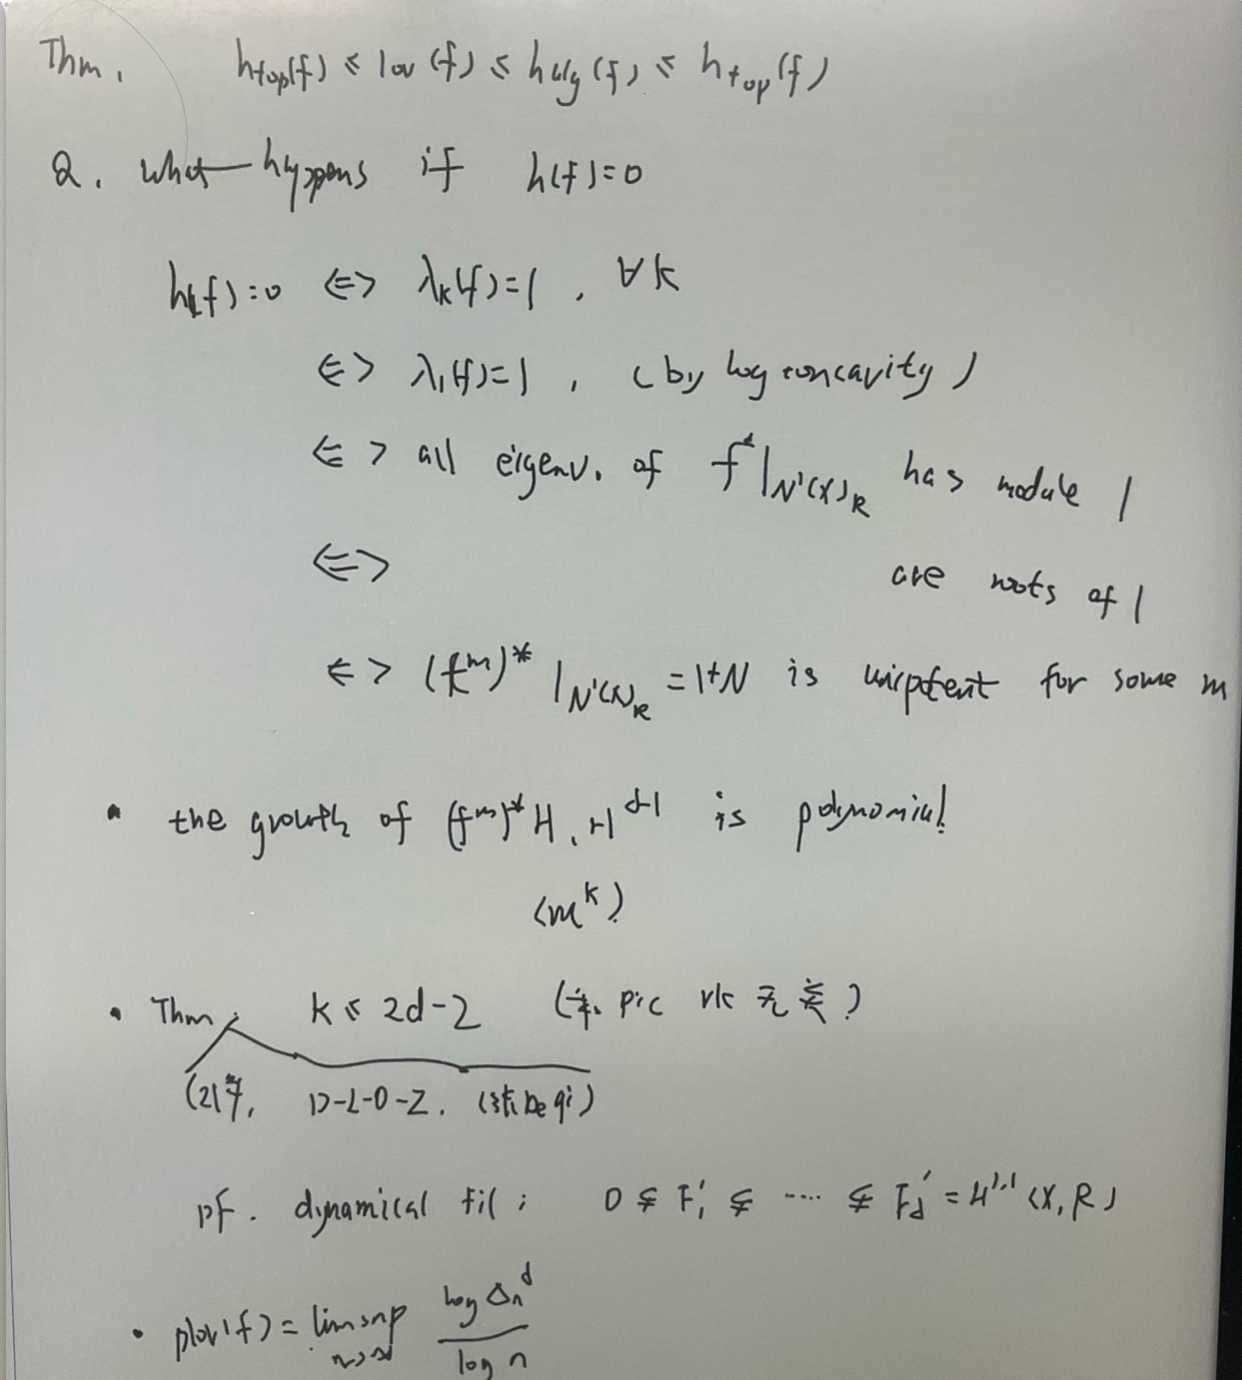 Thm. h_top(f) ≤ lov(f) ≤ h_alg(f) ≤ h_top(f)
Q. what happens if h(f)=0
h(f)=0 <=> λ_k(f)=1, ∀k
<=> λ_1(f)=1, (by log concavity)
<=> all eigenv. of f^*|_{N^1(X)_R} has module 1
<=> are roots of 1
<=> (f^m)^*|_{N^1(X)_R} = 1+N is unipotent for some m
• the growth of (f^m)^*H . H^{d-1} is polynomial
(m^k)
• Thm: k ≤ 2d-2 (与 pic rk 无关)
D-L-O-Z.
pf. dynamical fil: 0 ⊊ F_1' ⊊ ···· ⊊ F_d' = H^{1,1}(X, R)
• plov(f) = limsup_{n→∞} log Δ_n^d / log n